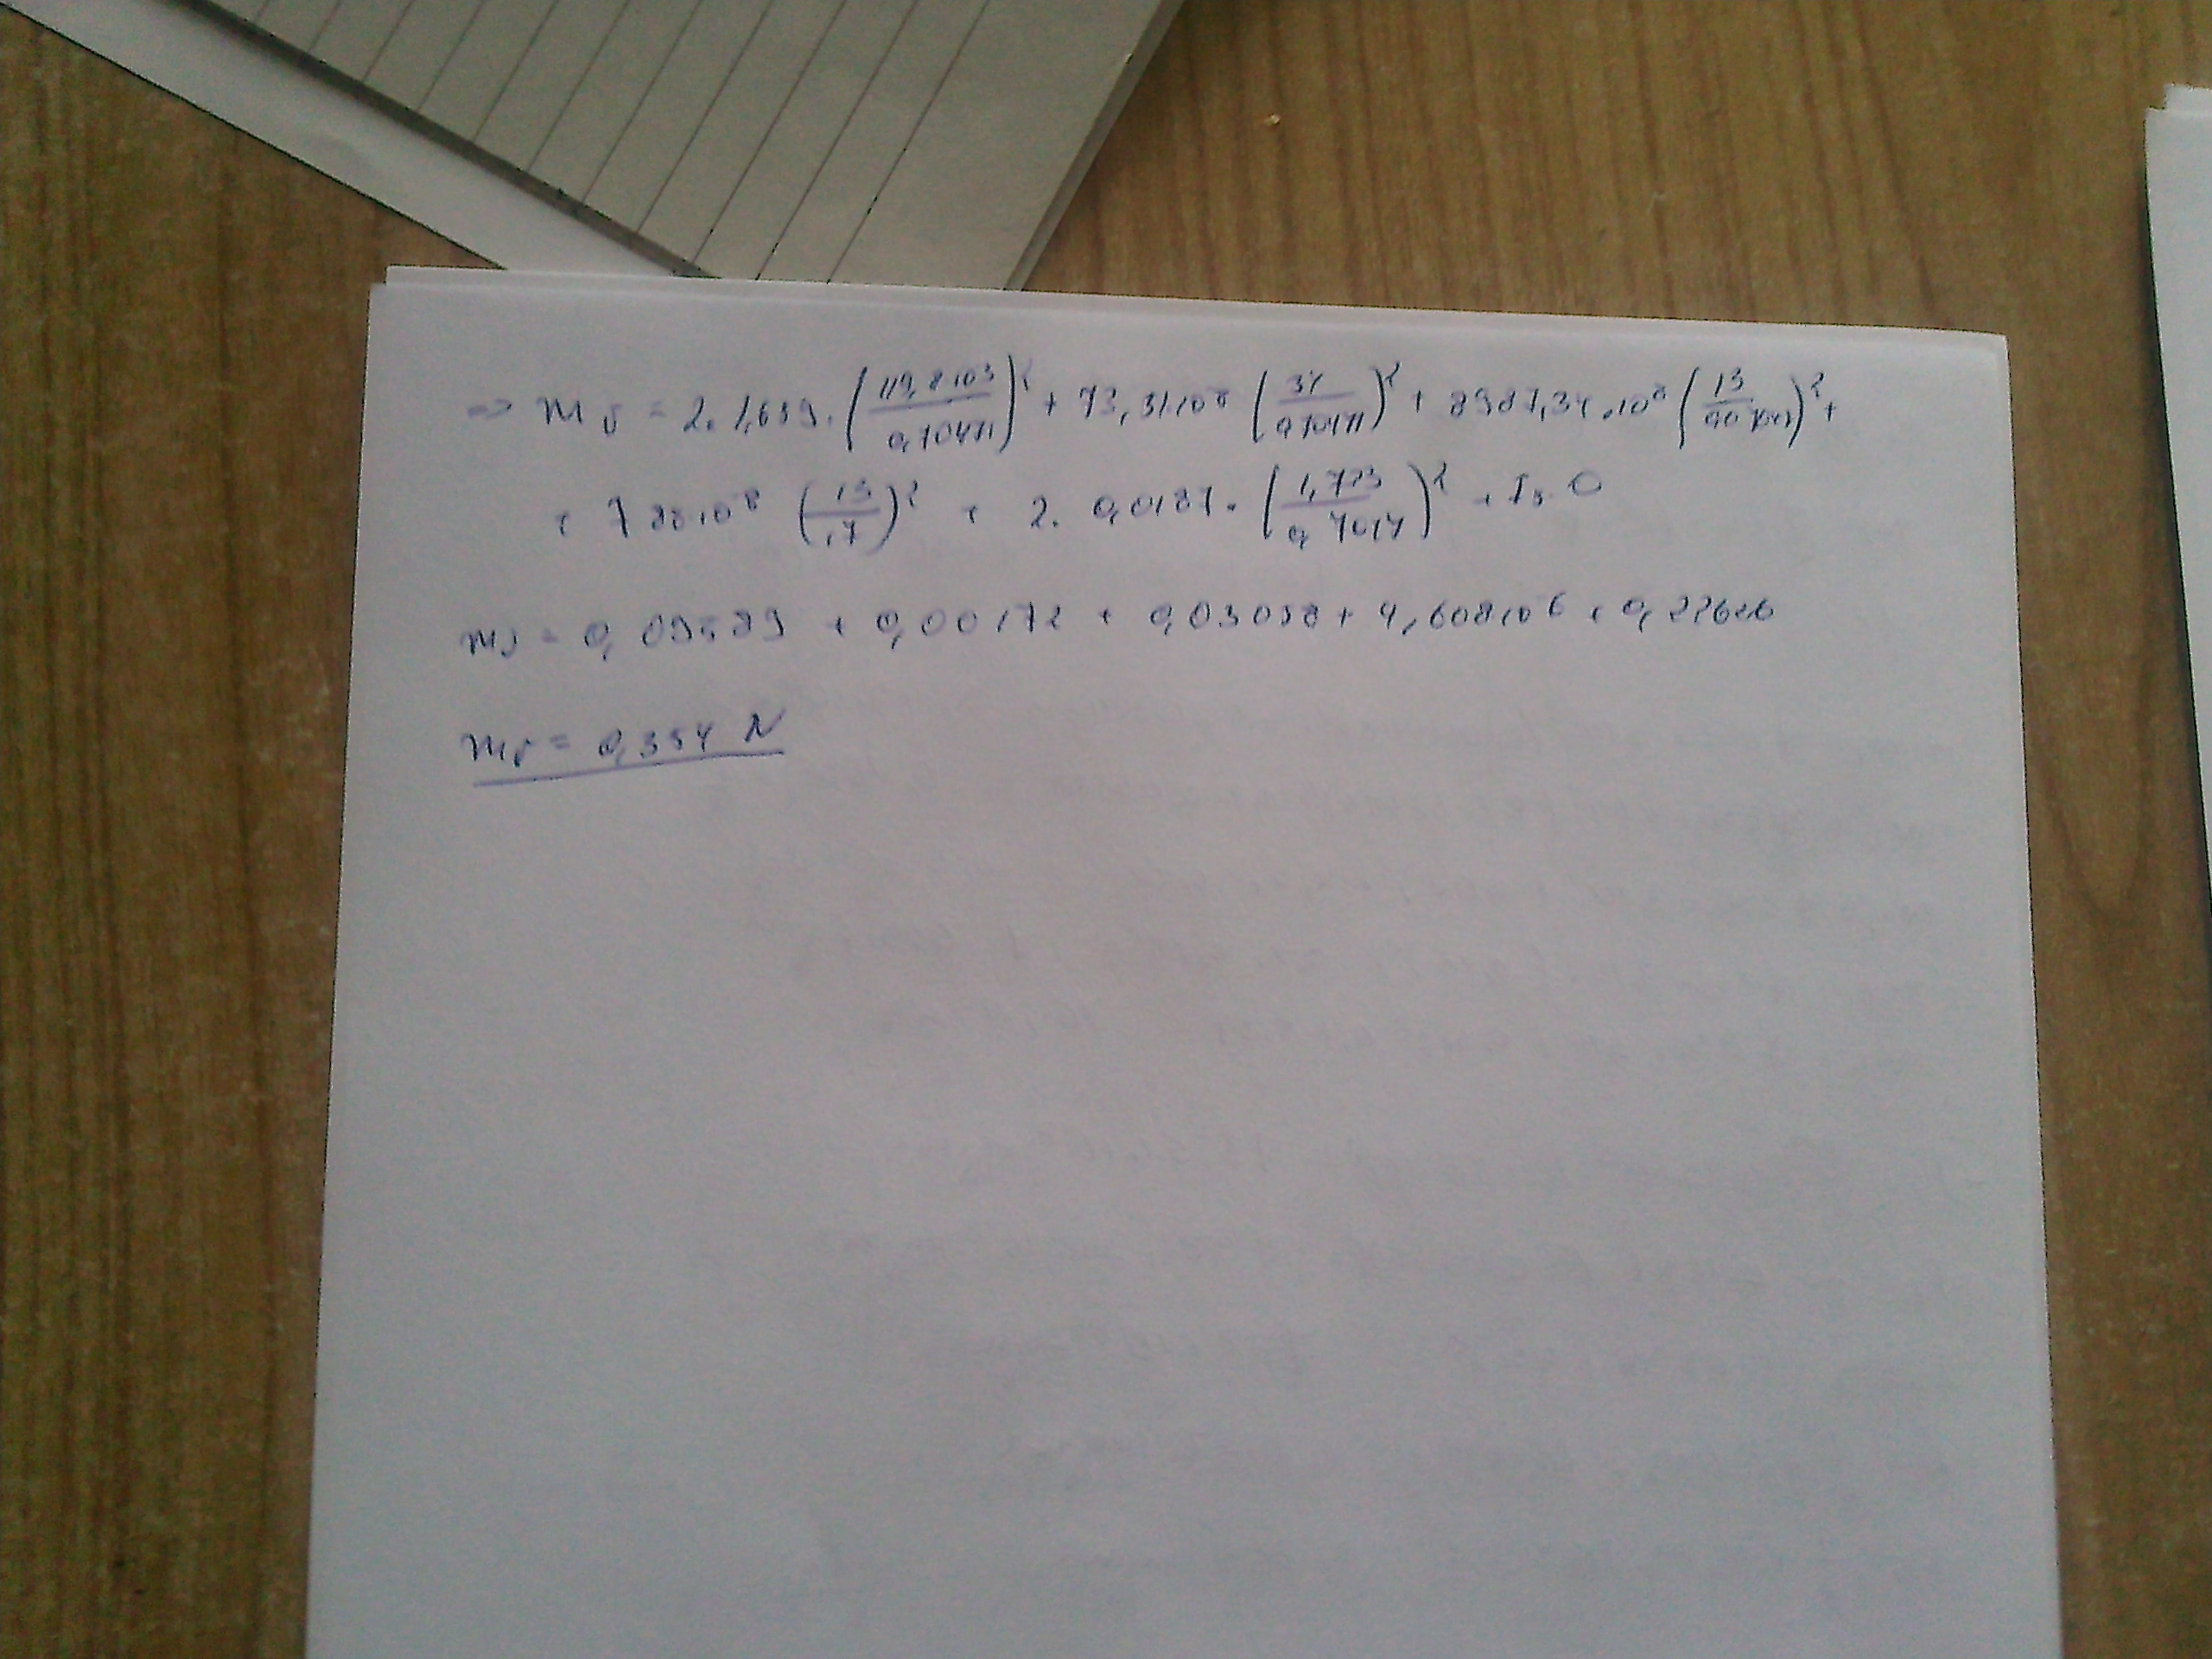 => mr = 2. 1,639. (119,8 103 / 0,70471)² + 73,31.10⁸ (37 / 0,70471)² + 8987,34.10⁸ (13 / )² +
+ 7 88.10⁸ (13 / ,7)² + 2. 0,0187. (1,723 / 0, 7014)² + I5.0
mr = 0,09589 + 0,00172 + 0,03058 + 4,608106 + 0,22626
mr = 0,354 N